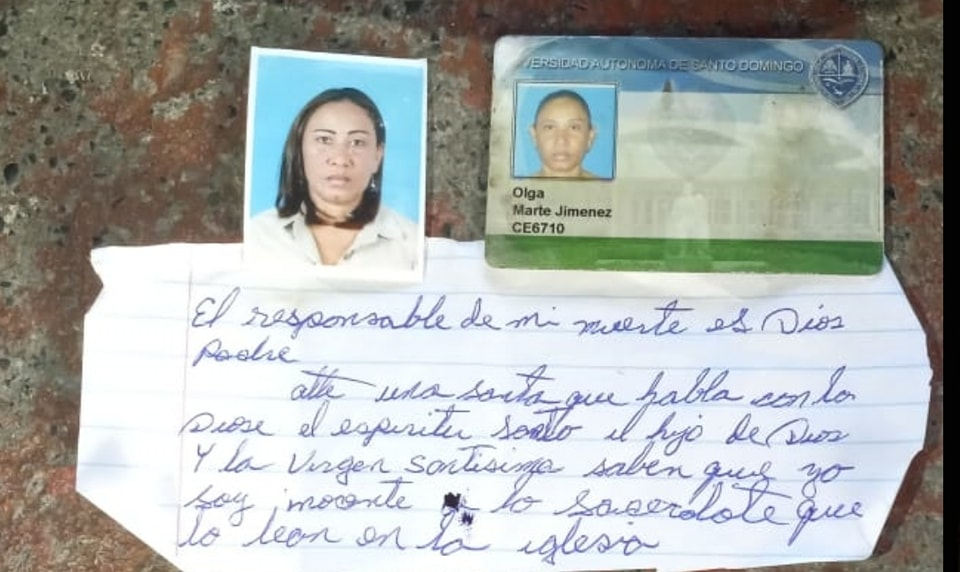 VERSIDAD AUTONOMA DE SANTO DOMINGO
Olga
Marte Jimenez
CE6710
El responsable de mi muerte es Dios
Padre
atte una santa que habla con lo
Diose el espiritu santo el hijo de Dios
Y la Virgen Santisima saben que yo
soy inocente lo sacerdote que
lo lean en la iglesia